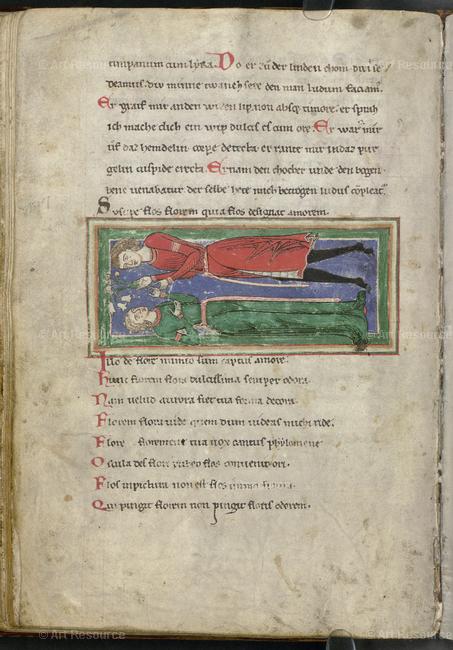 timpanum cum lyra. Do er zů der linden chom. dixi se
deamus. div minne twanch sere den man ludum faciam'.
Er graif mir an den wizen lip. non absqʒ timore. er sprah
ich mache dich ein wip dulcis es cum ore. Er warf mir
uf daz hemdelin. corpe detecta. er rante mir in daz pur
gelin cuspide erecta. Er nam den chocher unde den bogen.
bene uenabatur. der selbe hete mich betrogen ludus cōpleat'.
Suscipe flos florem quia flos designat amorem.
Illo de flore nimio sum captus amore.
Hunc florem flora dulcissima semper odora.
Nam uelud aurora fiet tua forma decora.
Florem flora uide quem dum uideas michi ride.
Flore tua uox cantus phylomene
Oscula des flori rubeo flos conuenit ori.
Flos in pictura non est flos immo figura.
Qui pingit florem non pingit floris odorem.
© Art Resource
© Art Resource
© Art Resource
© Art Resource
© Art Resource
© Art Resource